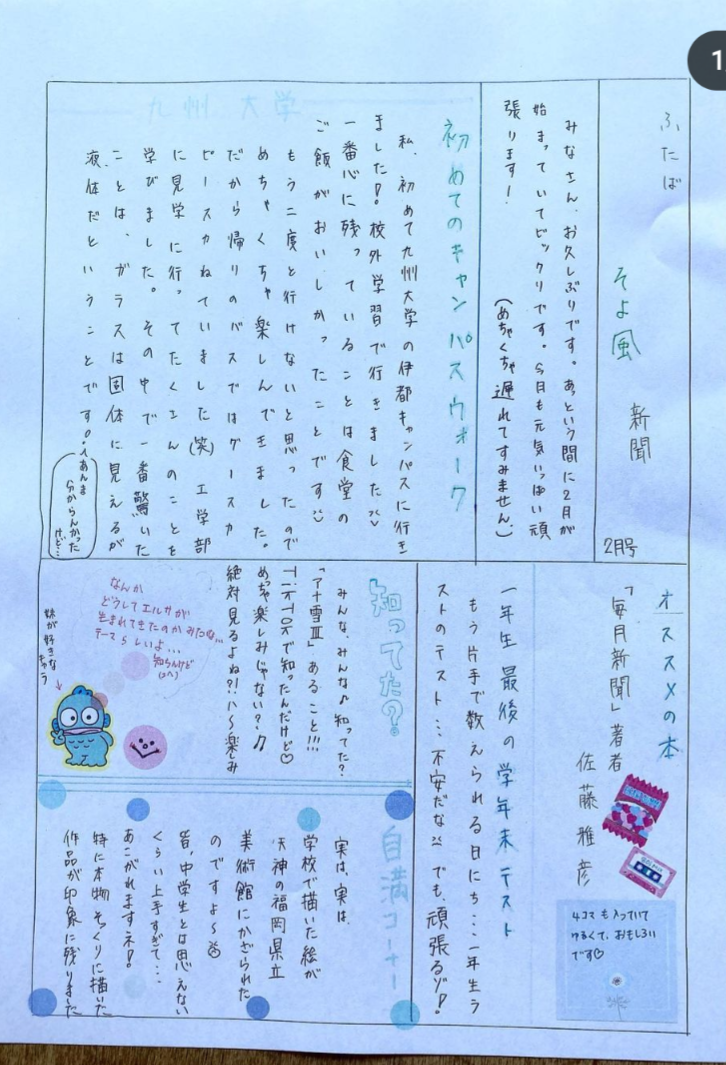 1
ふたば
そよ風
新聞
2月号
みなさん、お久しぶりです。あっという間に2月が
始まっていてビックリです。今月も元気いっぱい頑
張ります!
(めちゃくちゃ遅れてすみません。)
九州大学
初めてのキャンパスウォーク
私、初めて九州大学の伊都キャンパスに行き
ました!校外学習で行きました
一番心に残っていることは食堂の
ご飯がおいしかったことです
もう二度と行けないと思ったので
めちゃくちゃ楽しんできました。
だから帰りのバスではグースカ
ピースカねていました(笑)工学部
に見学に行ってたくさんのことを
学びました。その中で一番驚いた
ことは、ガラスは固体に見えるが
液体だということです。
(あんま
分からんかった
けど…
オススメの本
「毎月新聞」著者
佐藤雅彦
4コマも入っていて
ゆるくて、おもしろい
です♡
一年生最後の学年末テスト
もう片手で数えられる日にち…一年生ラ
ストのテスト…不安だな でも、頑張るゾ!
知ってた?
みんな、みんな♪知ってた?
「アナ雪Ⅲ」あること!!!
TikTokで知ったんだけど♡
めっちゃ楽しみじゃない?♫
絶対見るよね?!ハ〜楽しみ
なんか
どうしてエルサが
生まれてきたのかみたいな…
テーマらしいよ…
知らんけど
妹が好きな
きゃら
自満コーナー
実は、実は、
学校で描いた絵が
天神の福岡県立
美術館にかざられた
のですよ〜
皆、中学生とは思えない
くらい上手すぎて…
あこがれますネ!
特に本物そっくりに描いた
作品が印象に残りました